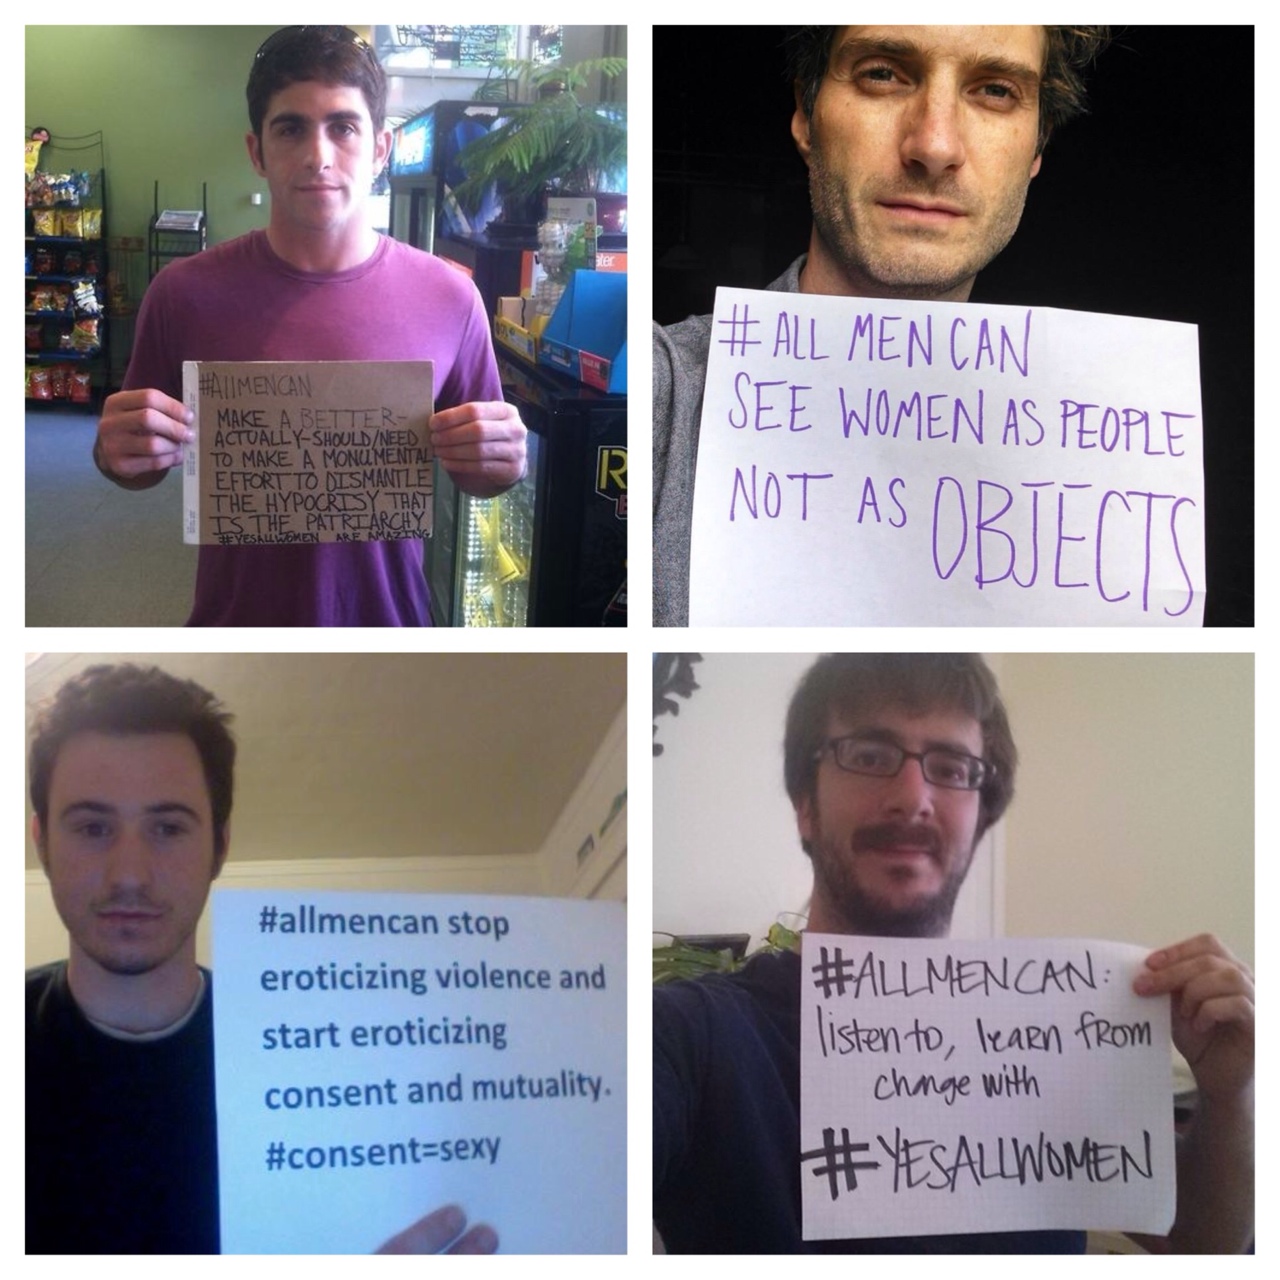 #AllMENCAN
MAKE A BETTER-
ACTUALLY-SHOULD/NEED
TO MAKE A MONUMENTAL
EFFORT TO DISMANTLE
THE HYPOCRISY THAT
IS THE PATRIARCHY
#YESALLWOMEN ARE AMAZING
# ALL MEN CAN
SEE WOMEN AS PEOPLE
NOT AS OBJECTS
#allmencan stop
eroticizing violence and
start eroticizing
consent and mutuality.
#consent=sexy
#ALLMENCAN:
listen to, learn from
change with
#YESALLWOMEN